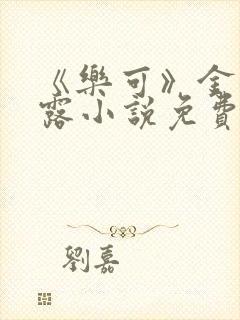 《樂可》金
露小說免費
劉嘉